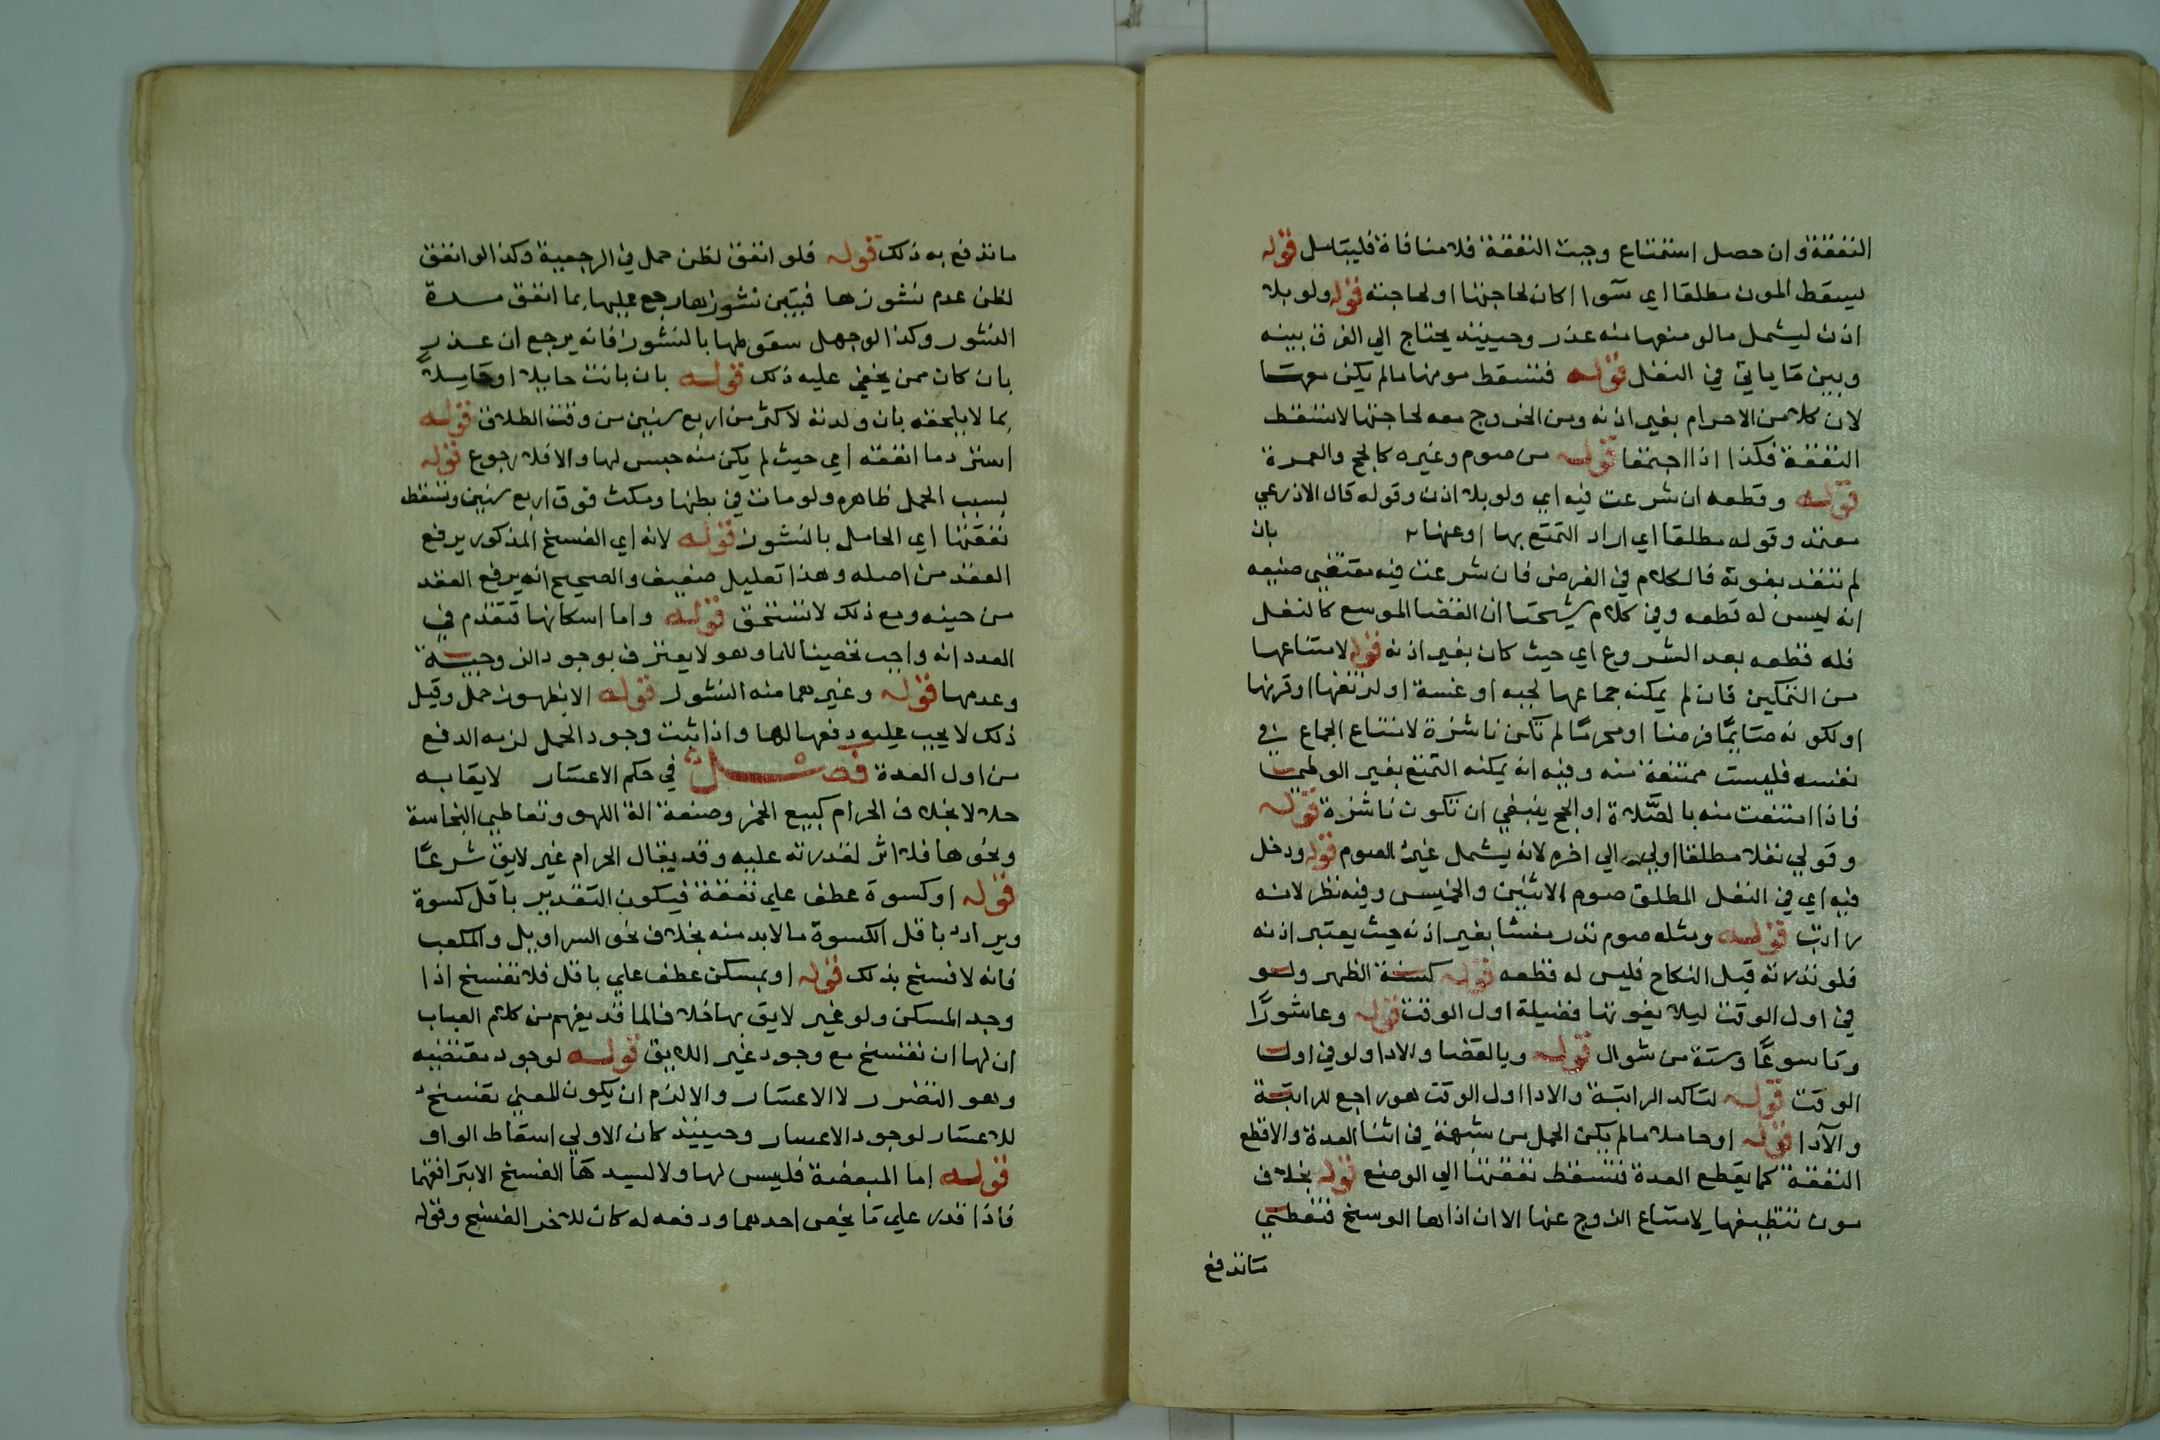 النفقة وان حصل استمتاع وجبت النفقة فلا منافاة فليتامل قوله
يسقط المون مطلقا اي سوا اكان لحاجتها او لحاجته قوله ولو بلا
اذن ليشمل مالو منعها منه عذر وحينيذ يحتاج الي الفرق بينه
وبين ما ياتي في النفل قوله فتسقط مونها مالم يكن معها
لان كلا من الاحرام بغير اذنه ومن الخروج معه لحاجتها لا تسقط
النفقة فكذا اذا اجتمعا قوله من صوم وغيره كالحج والعمرة
قوله وقطعه ان شرعت فيه اي ولو بلا اذن وقوله قال الاذرعي
معتمد وقوله مطلقا اي اراد التمتع بها او عنها بان
لم تتقيد بفوته فالكلام في الفرض فان شرعت فيه مقتضي صنيعه
انه ليس له قطعه وفي كلام شيخنا ان القضا الموسع كالنفل
فله قطعه بعد الشروع اي حيث كان بغير اذنه قوله لامتناعها
من التمكين فان لم يمكنه جماعها لجبه او عنته او لرتقها او قرنها
او لكونه صايما فرضا او محرما لم تكن ناشزة لامتناع الجماع في
نفسه فليست ممتنعة منه وفيه انه يمكنه التمتع بغير الوطي
فاذا امتنعت منه بالصلاة او الحج ينبغي ان تكون ناشزة قوله
وقولي نفلا مطلقا اولي الي اخره لانه يشمل غير الصوم قوله ودخل
فيه اي في النفل المطلق صوم الاثنين والخميس وفيه نظر لانه
راتب قوله ومثله صوم نذر منشا بغير اذنه حيث يعتبر اذنه
فلو نذرته قبل النكاح فليس له قطعه قوله كسنة الظهر ولو
في اول الوقت ليلا يفوتها فضيلة اول الوقت قوله وعاشورا
وتاسوعا وستة من شوال قوله وبالقضا والادا ولو في اول
الوقت قوله لتاكد الراتبة والادا اول الوقت هو راجع للراتبة
والادا قوله او حاملا مالم يكن الحمل من شبهة في اثنا العدة والا قطع
النفقة كما يقطع العدة فتسقط نفقتها الي الوضع قوله بخلاف
مون تنظيفها لامتناع الزوج عنها الا ان اذاها الوسخ فتعطي
ماندفع
ماندفع به ذلك قوله فلو انفق لظن حمل في الرجعية وكذا لو انفق
لظن عدم نشوزها فتبين نشوزها رجع عليها بما انفق مدة
النشوز وكذا لو جهل سقوطها بالنشوز فانه يرجع ان عذر
بان كان ممن يخفي عليه ذلك قوله بان بانت حايلا او حاملا
بما لا يلحقه بان ولدته لاكثر من اربع سنين من وقت الطلاق قوله
استرد ما انفقه اي حيث لم يكن منه حبس لها والا فلا رجوع قوله
بسبب الحمل ظاهره ولو مات في بطنها ومكث فوق اربع سنين وتسقط
نفقتها اي الحامل بالنشوز قوله لانه اي الفسخ المذكور يرفع
العقد من اصله وهذا تعليل ضعيف والصحيح انه يرفع العقد
من حينه ومع ذلك لا تستحق قوله واما اسكانها فتقدم في
العدد انه واجب تحصينا للما وهو لا يفترق بوجود الزوجية
وعدمها قوله وغيرهما منه النشوز قوله الا بظهور حمل وقيل
ذلك لا يجب عليه دفعها لها واذا ثبت وجود الحمل لزمه الدفع
من اول العدة فصل في حكم الاعسار لا يقابه
حلا لا بخلاف الحرام كبيع الخمر وصنعة الة اللهو وتعاطي النجاسة
ونحوها فلا اثر لقدرته عليه وقد يقال الحرام غير لايق شرعا
قوله او كسوة عطف علي نفقة فيكون التقدير باقل كسوة
ويراد باقل الكسوة مالابد منه بخلاف نحو السراويل والمكعب
فانه لا فسخ بذلك قوله او بمسكن عطف علي باقل فلا تفسخ اذا
وجد المسكن ولو غير لايق بها خلافا لما قد يفهم من كلام العباب
ان لها ان تفسخ مع وجود غير اللايق قوله لوجود مقتضيه
وهو التضرر لا الاعسار والا لزم ان يكون المعني تفسخ
للاعسار لوجود الاعسار وحينيذ كان الاولي اسقاط الواو
قوله اما المبعضة فليس لها ولا لسيدها الفسخ الا بتوافقهما
فاذا قدر علي ما يخص احدهما ودفعه له كان للاخر الفسخ وقوله